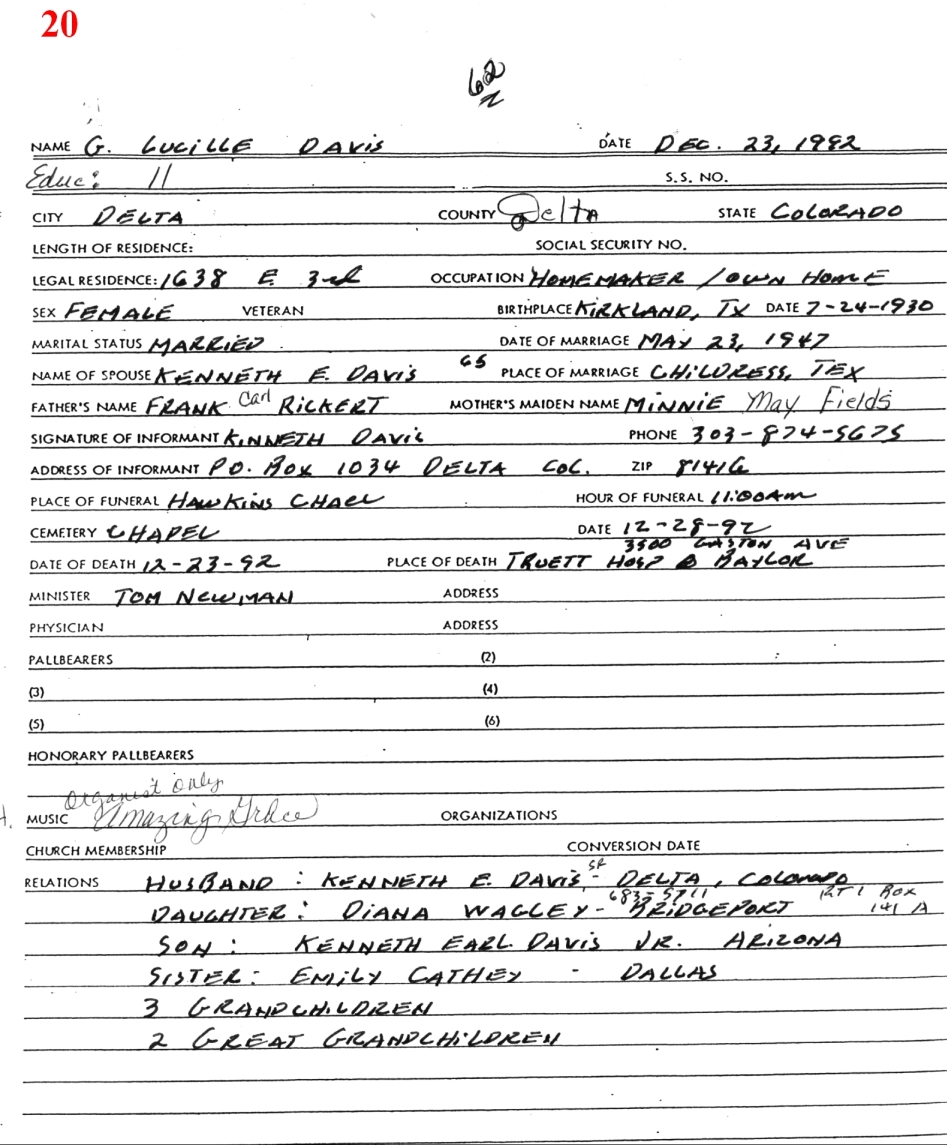 20
62
NAME G. LUCILLE DAVIS DATE DEC. 23, 1992
Educ: 11 S.S. NO.
CITY DELTA COUNTY Delta STATE COLORADO
LENGTH OF RESIDENCE: SOCIAL SECURITY NO.
LEGAL RESIDENCE: 1638 E 3rd OCCUPATION HOMEMAKER / OWN HOME
SEX FEMALE VETERAN BIRTHPLACE KIRKLAND, TX DATE 7-24-1930
MARITAL STATUS MARRIED DATE OF MARRIAGE MAY 23, 1947
NAME OF SPOUSE KENNETH E. DAVIS 65 PLACE OF MARRIAGE CHILDRESS, TEX
FATHER'S NAME FRANK Carl RICKERT MOTHER'S MAIDEN NAME MINNIE May Fields
SIGNATURE OF INFORMANT KINNETH DAVIS PHONE 303-874-5675
ADDRESS OF INFORMANT P.O. BOX 1034 DELTA COL. ZIP 81416
PLACE OF FUNERAL HAWKINS HOUR OF FUNERAL 11:00AM
CEMETERY CHAPEL DATE 12-28-92
3500 GASTON AVE
DATE OF DEATH 12-23-92 PLACE OF DEATH TRUETT HOSP BAYLOR
MINISTER TOM NEWMAN ADDRESS
PHYSICIAN ADDRESS
PALLBEARERS (2)
(3) (4)
(5) (6)
HONORARY PALLBEARERS
Organist Only
MUSIC Amazing Grace ORGANIZATIONS
CHURCH MEMBERSHIP CONVERSION DATE
RELATIONS HUSBAND : KENNETH E. DAVIS, SR - DELTA, COLORADO
683-5711 RT 1 BOX
DAUGHTER : DIANA WAGLEY - BRIDGEPORT 141 A
SON : KENNETH EARL DAVIS JR. ARIZONA
SISTER : EMILY CATHEY - DALLAS
3 GRANDCHILDREN
2 GREAT GRANDCHILDREN